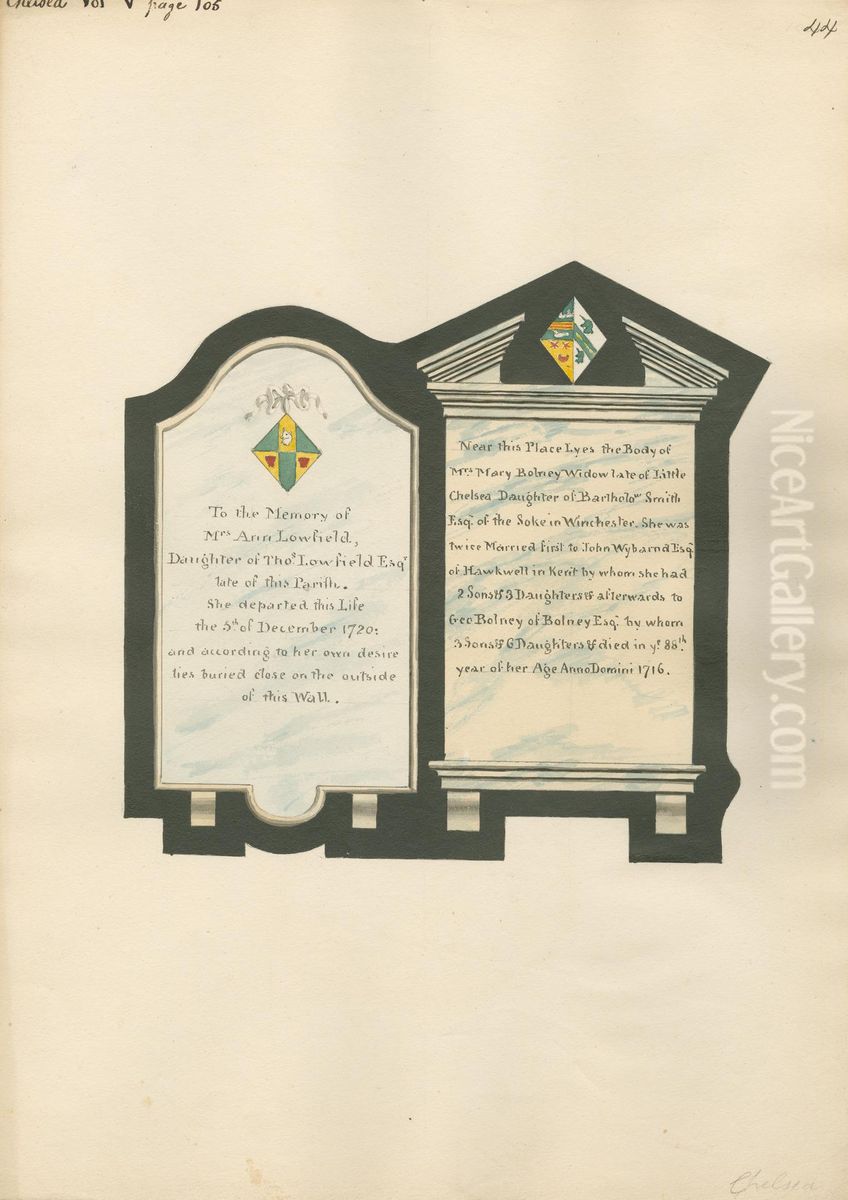 Chelsea Vol V page 105
44
To the Memory of
Mrs Ann Lowfield,
Daughter of Thos. Lowfield Esqr
late of this Parish.
She departed this Life
the 5th of December 1720:
and according to her own desire
lies buried close on the outside
of this Wall.
Near this Place Lyes the Body of
Mrs Mary Bolney Widow late of Little
Chelsea Daughter of Bartholow Smith
Esqr. of the Soke in Winchester. She was
twice Married first to John Wybarnd Esqr
of Hawkwell in Kent by whom she had
2 Sons & 3 Daughters & afterwards to
Geo Bolney of Bolney Esqr. by whom
3 Sons & 6 Daughters & died in ye. 88th.
year of her Age Anno Domini 1716.
NiceArtGallery.com
Chelsea